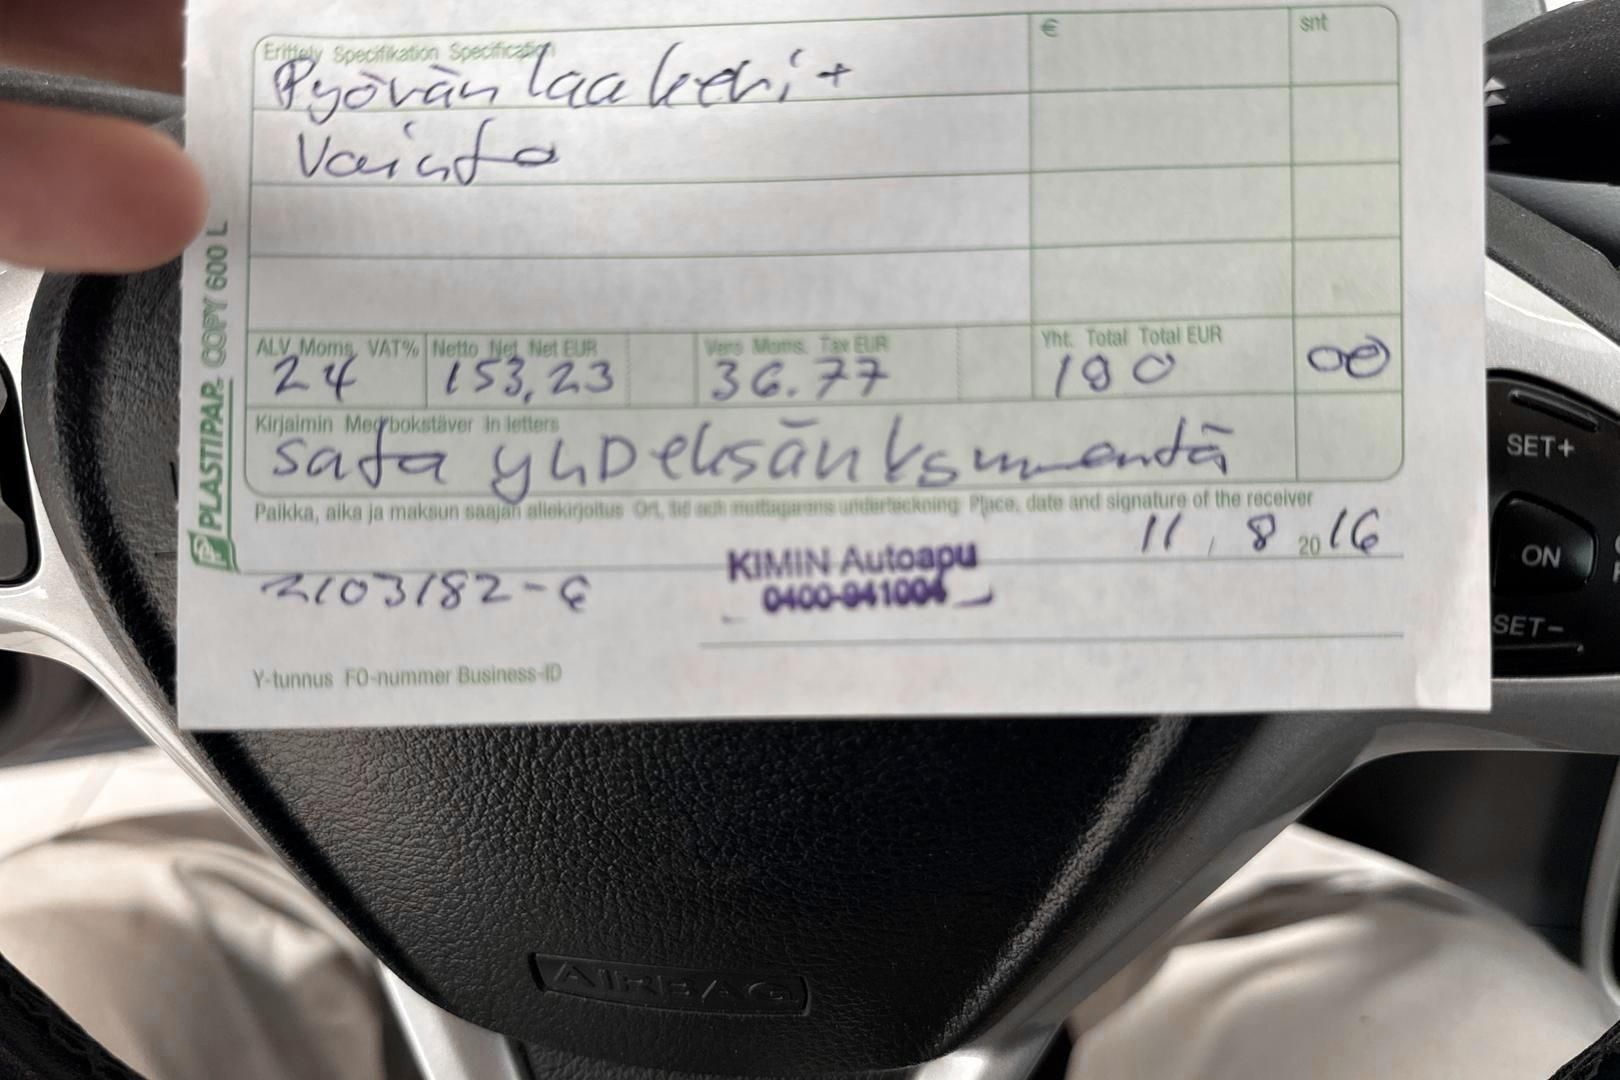 Erittely Specifikation Specification
€
snt
Pyörän laakeri +
Vaihto
ALV Moms. VAT%
Netto Net Net EUR
Vero Moms. Tax EUR
Yht. Total Total EUR
24
153,23
36.77
190
00
Kirjaimin Med bokstäver In letters
sata yhDeksänkymmentä
Paikka, aika ja maksun saajan allekirjoitus Ort, tid och mottagarens underteckning Place, date and signature of the receiver
11 , 8 2016
KIMIN Autoapu
0400-941004
2103182-6
Y-tunnus FO-nummer Business-ID
PLASTIPAP. COPY 600 L
SET+
ON
SET-
AIRBAG